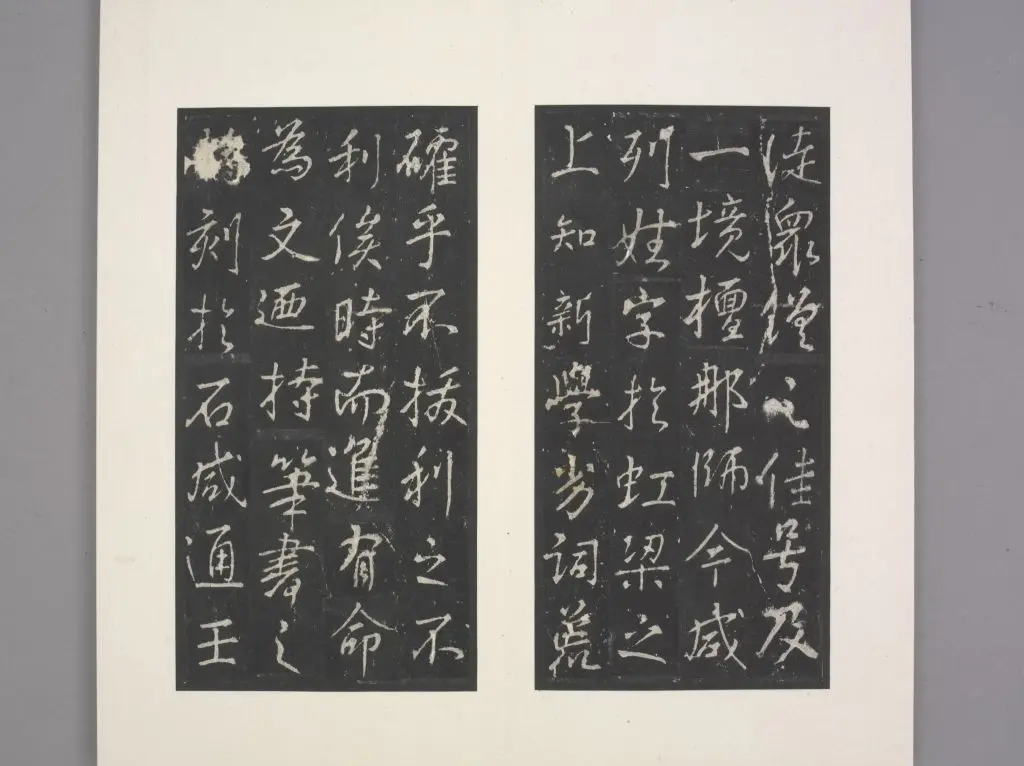 徒眾之佳號及
一境檀那師今咸
列姓字於虹梁之
上知新學劣詞荒
確乎不拔利之不
利俟時而進有命
為文迺持筆書之
刻於石咸通壬